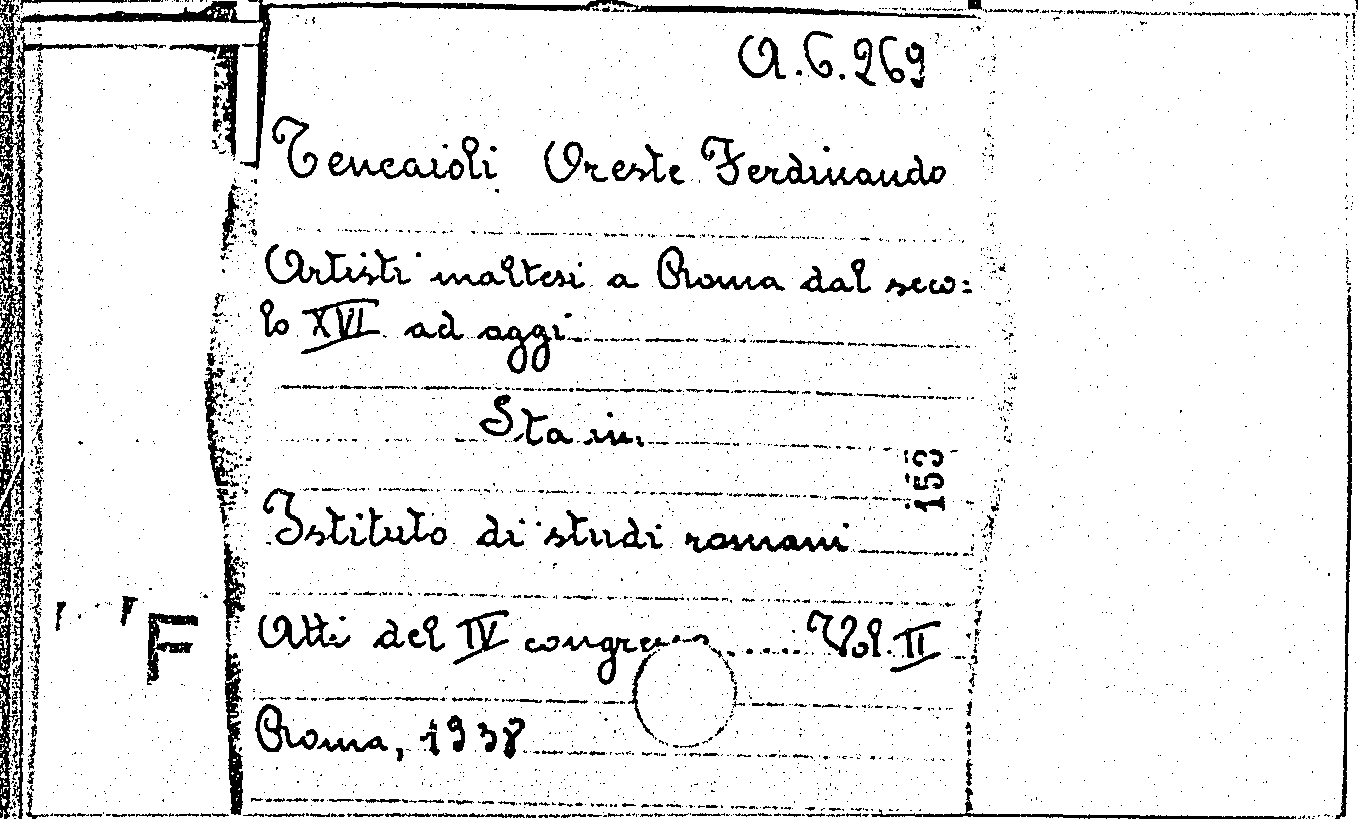 A.6.269
Tencaioli Oreste Ferdinando
Artisti maltesi a Roma dal seco=
lo XVI ad aggi
Sta in.
153
Istituto di studi romani
Atti del IV congresso ..... Vol. II
Roma, 1938